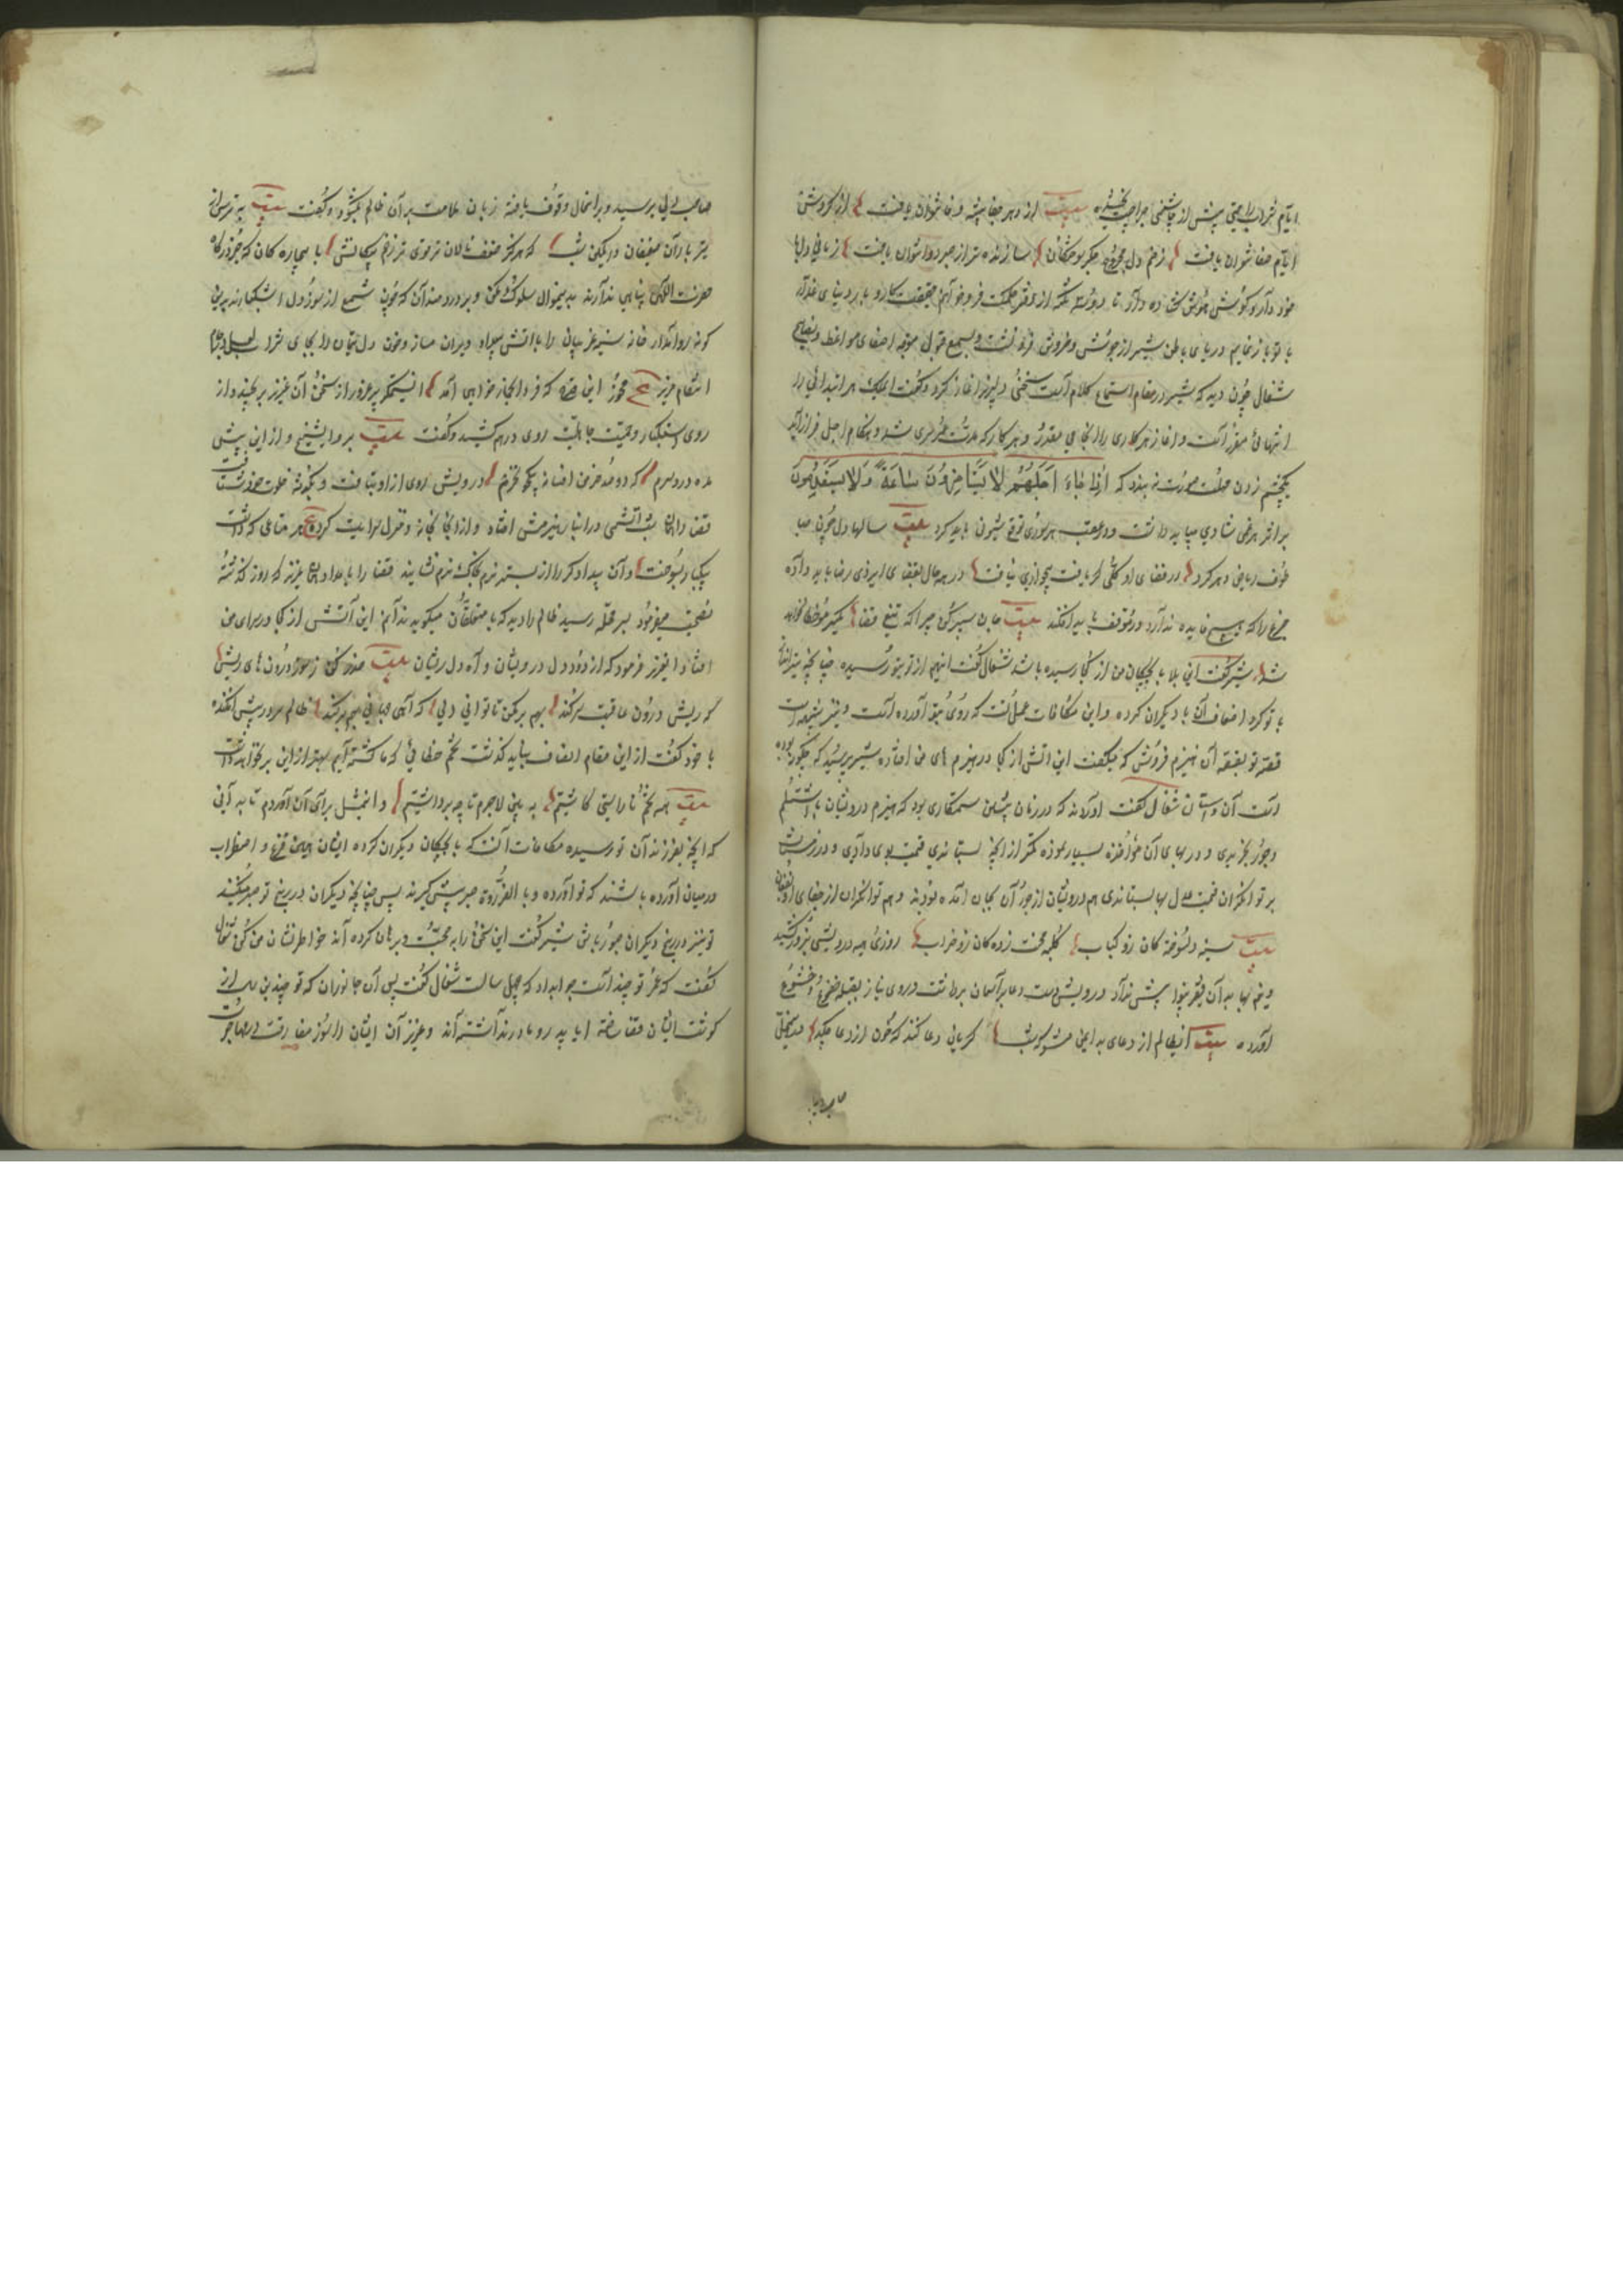 ایام شراب راحتی پیش از چاشنی جراحت نچشیده بیت از دهر جفا پیشه وفا نتوان یافت از گردش
ایام صفا نتوان یافت زخم دل مجروح جگر سوختگان سازنده‌تر از صبر دوا نتوان یافت زمانی دل با
خود دار و گوش هوش گشاده دار تا دو سه نکته از دفتر حکمت فرو خوانم حقیقت کار و بار دنیای غدار
با تو باز نمایم دریای باطن شیر از جوش و خروش فرو نشست و بسمع قبول متوجه اصغای مواعظ و نصایح
شغال چون دید که شیر در مقام استماع کلام است سخنی دلپذیر آغاز کرد و گفت ای ملک هر ابتدائی را
انتهائی مقرر است و آغاز هر کاری را انجامی مقدر و هرگاه که مدت عمر سپری شد و هنگام اجل فراز آید
یکچشم زدن مهلت صورت نبندد که اذا جاء اجلهم لا یستاخرون ساعة ولا یستقدمون
بر اثر هر غمی شادی میباید داشت و در عقب هر سوری توقع شیون باید کرد بیت سالها دل چون صبا
طوف ریاض دهر کرد در فضای او گلی بی خار یافت در همه حال بقضای ایزدی رضا باید داده
جزع را که هیچ فایده ندارد در توقف باید افکند بیت جان سپر کن چرا که تیغ قضا
شد شیر گفت این بلا با بچگان من از کجا رسیده باشد شغال گفت اینهم از تو بتو رسیده چنانچه تیرانداز
با تو کرد اضعاف آن با دیگران کرده و این مکافات عمل است که روی بتو آورده است
قصه تو بقصه آن هیزم فروش که میگفت این آتش از کجا در هیزم های من افتاده شیر پرسید که چگونه بوده
است آن داستان شغال گفت آورده‌اند که در زمان پیشین ستمکاری بود که هیزم درویشان باشتلم
و جور بخریدی و در بهای آن مؤاخذه بسیار نموده کمتر از آنچه بستاندی قیمت بوی دادی و در زمستان
بر توانگران قیمت عدل بها بستاندی هم درویشان از جور آن بجان آمده بودند و هم توانگران از جفای او بفغان
بیت سینه دلسوخته کان زو کباب کلبه محنت زده کان زو خراب روزی هیمه درویشی بزور کشید
و نیم بها به آن فقیر بینوا پیش نداد درویش دست دعا بر آسمان برداشت و روی نیاز بقبله خضوع و خشوع
آورده بیت ای ظالم از دعای بد ایمن مشو که شب گریان دعا کند که خون از دعا چکد
صاحب دلی برسید و بر آنحال وقوف یافته زبان ملامت بر آن ظالم بگشود و گفت بیت بترس از
تیر باران ضعیفان در کمین شب که هر کز ضعف نالان تر قوی تر زخم پیکانش با بیچاره کان که جز درگاه
حضرت الله پناهی ندارند بدینمنوال سلوک مکن و بر دردمندان که چون شمع از سوز دل اشکبارند بدین
گونه روا مدار خانه سینه غریبان را باتش بیداد ویران مساز و خون دل یتیمان را بجای شراب
انتقام مریز ع مخور این قدح که فردا بخمار خواهی آمد آن ستمگر پر غرور از سخن آن عزیز برنجید و از
روی استکبار و حمیت جاهلیت روی درهم کشید و گفت بیت برو ای شیخ و ازین پیش
مده دردسرم که دو صد خرمن افسانه بیکجو نخرم درویش روی از او بتافت و بگوشه خلوت خود شتافت
قضا را همان شب آتشی در انبار هیزمش افتاد و از آنجا بخانه و منزل سرایت کرد ع هر متاعی که داشت
پیکبار بسوخت و آن بیدادگر را از بستر نرم بخاکستر گرم نشانید قضا را بامداد همان عزیز که روز گذشته
نصیحت میفرمود بسر محله رسید ظالم را دید که با متعلقان میگوید ندانم این آتش از کجا در سرای من
افتاد آن عزیز فرمود که از دود دل درویشان و آه دل ریشان بیت حذر کن ز سوز درون های ریش
که ریش درون عاقبت سر کند بهم بر مکن تا توانی دلی که آهی جهانی بهم برکند ظالم سر در پیش افکنده
با خود گفت از این مقام انصاف نباید گذشت تخم خطائی که ما کشته‌ایم بهتر از این بر نخواهد داشت
بیت همه تخم نا راستی کاشتیم به بین لاجرم تا چه برداشتیم و این مثل برای آن آوردم تا بدانی
که آنچه بفرزندان تو رسیده مکافات آنست که با بچگان دیگران کرده ایشان همین فزع و اضطراب
در میان آورده باشند که تو آورده و بالضرورة صبر پیش گیرند پس چنانچه دیگران در رنج تو صبر میکنند
تو نیز در رنج دیگران صبور باش شیر گفت این سخن را به حجت و برهان کرده آن خاطر نشان من کن شغال
گفت که عمر تو چند است جوابداد که چهل سال است شغال گفت پس آن جانوران که تو چندین سال از
گوشت ایشان غذا ساخته آیا پدر و مادر نداشته‌اند و عزیزان ایشان را سوز مفارقت و مهاجرت